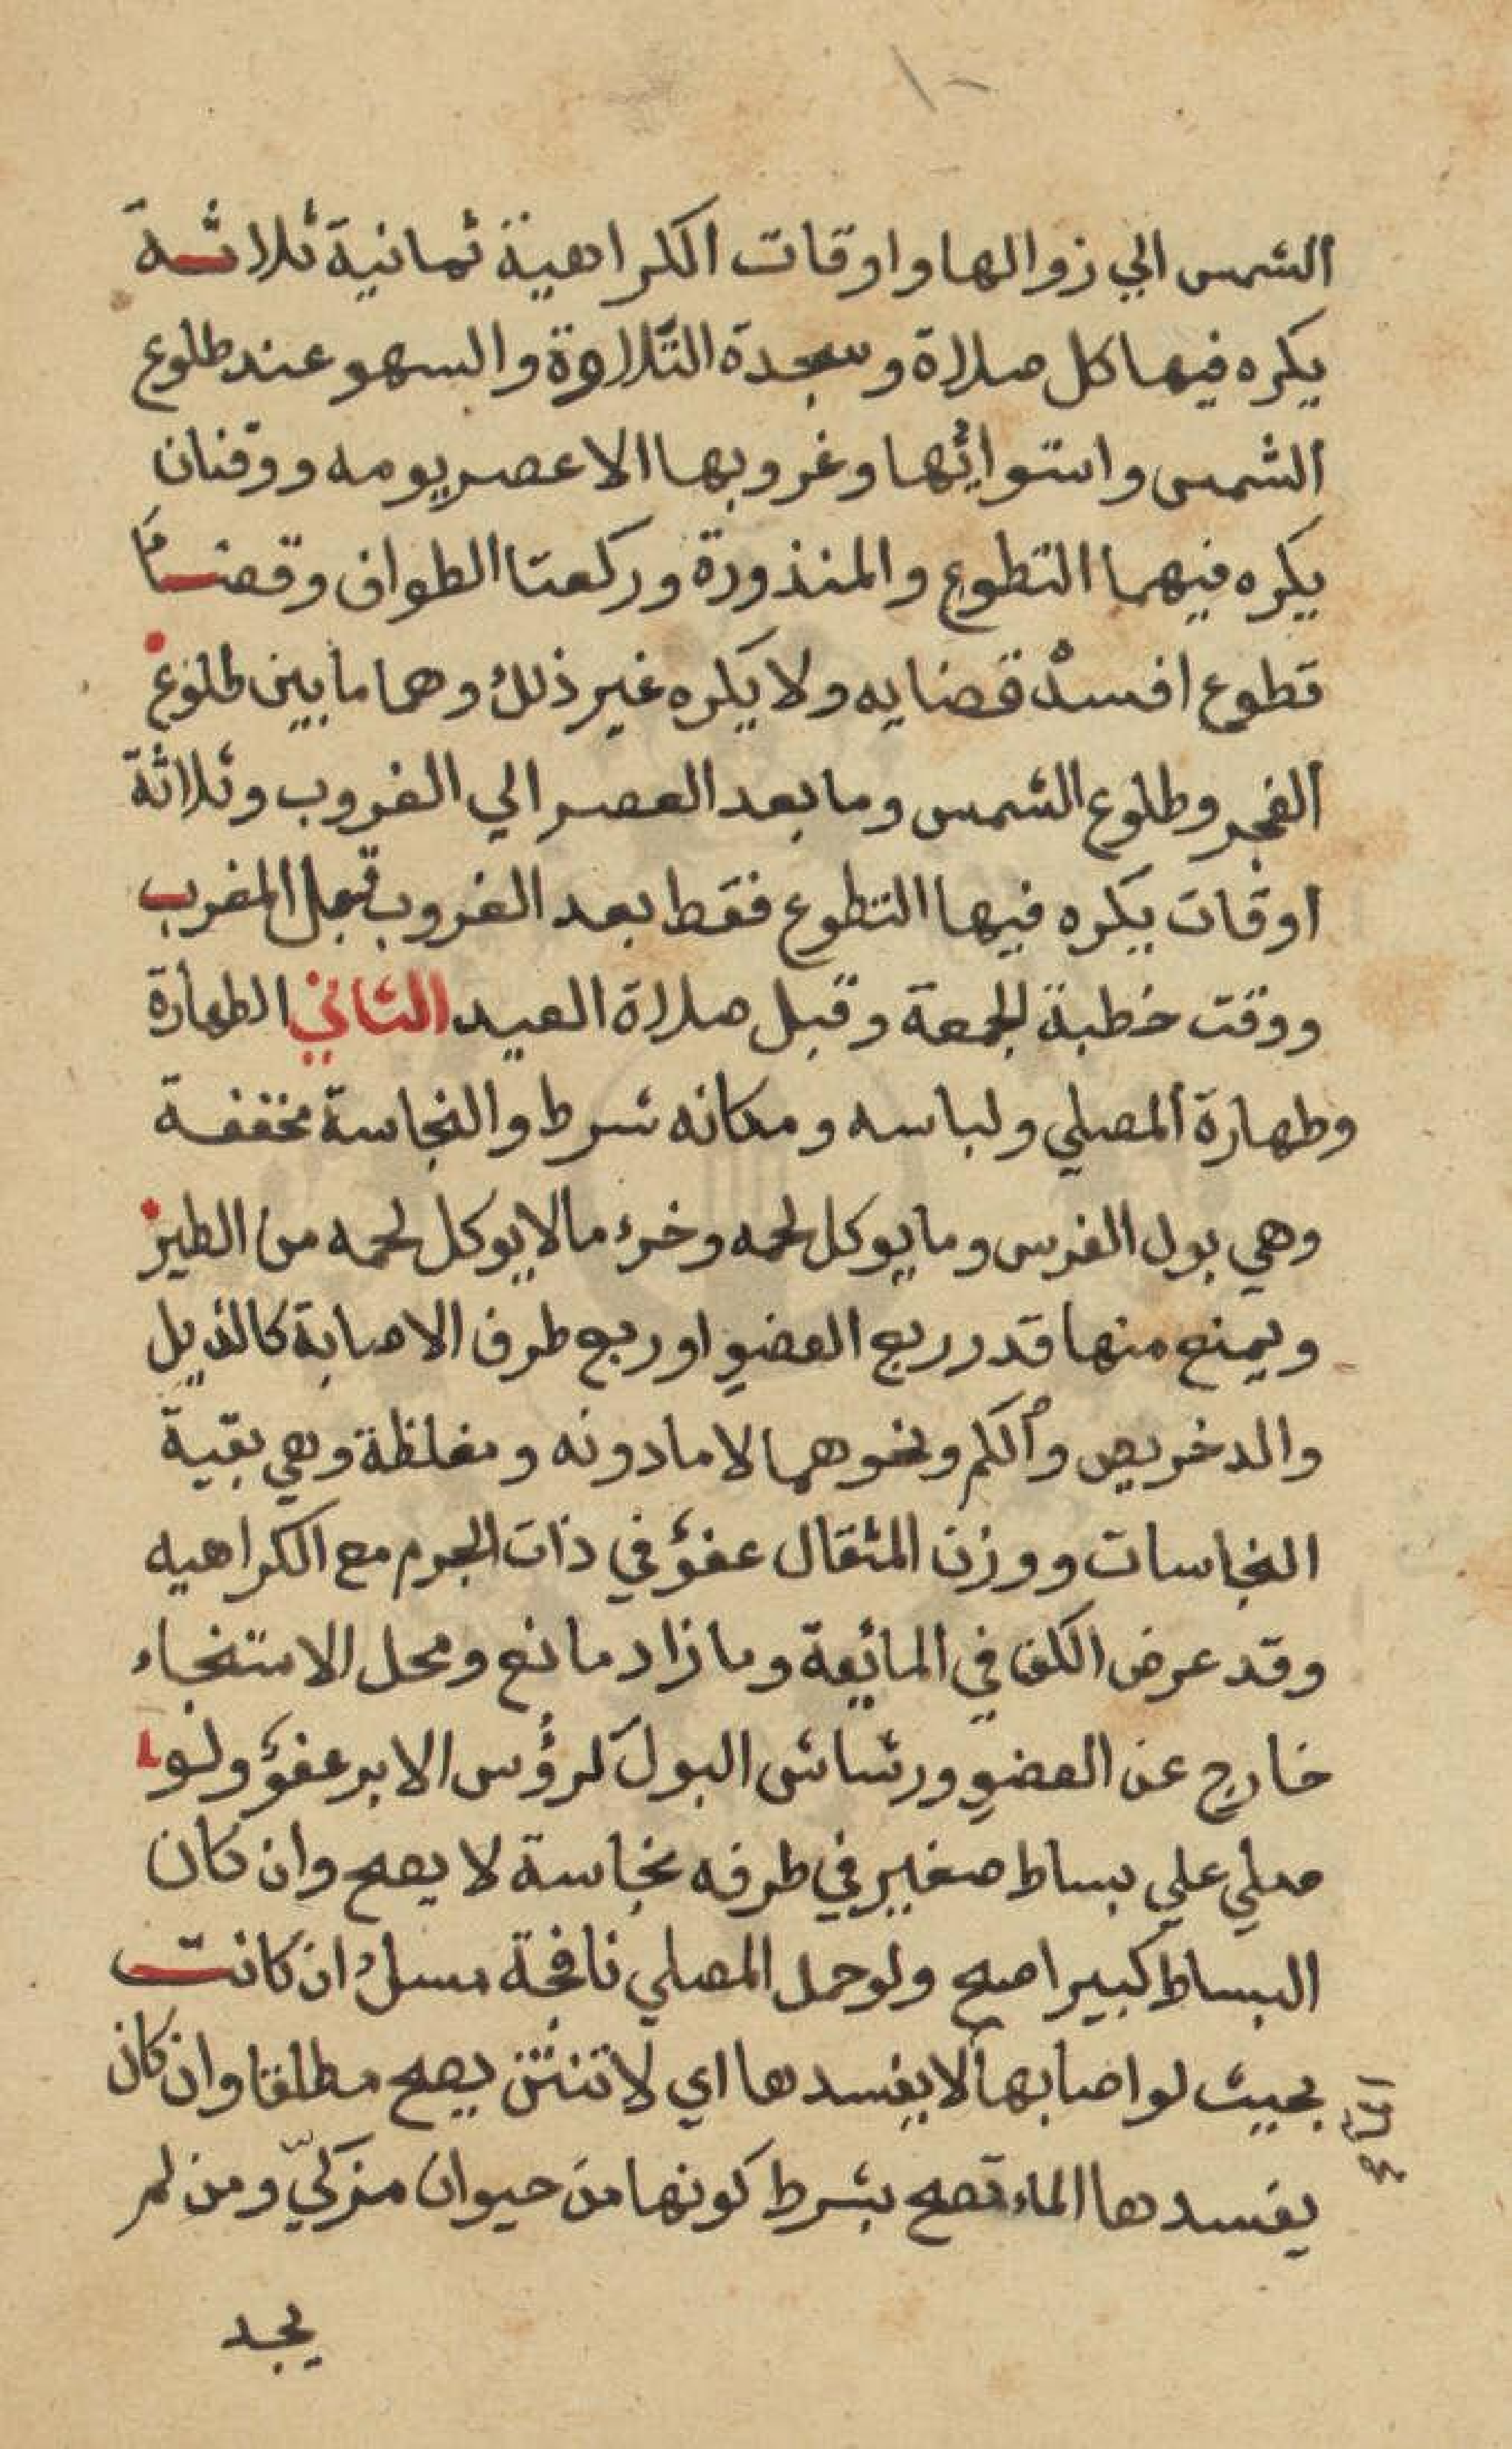 الشمس الي زوالها واوقات الكراهية ثمانية ثلاثة
يكره فيها كل صلاة وسجدة التلاوة والسهو عند طلوع
الشمس واستوائها وغروبها الا عصر يومه ووقتان
يكره فيهما التطوع والمنذورة وركعتا الطواف وقضا
تطوع افسد قضايه ولا يكره غير ذلك وهما ما بين طلوع
الفجر وطلوع الشمس وما بعد العصر الي الغروب وثلاثة
اوقات يكره فيها التطوع فقط بعد الغروب قبل المغرب
ووقت خطبة الجمعة وقبل صلاة العيد الثاني الطهارة
وطهارة المصلي ولباسه ومكانه شرط والنجاسة مخففة
وهي بول الفرس وما يوكل لحمه وخرء مالا يوكل لحمه من الطير
ويمنع منها قدر ربع العضو او ربع طرف الاصابة كالذيل
والدخريص والكم ونحوهما لا مادونه ومغلظة وهي بقية
النجاسات ووزن المثقال عفؤ في ذات الجرم مع الكراهيه
وقد عرض الكف في المائعة وما زاد مانع ومحل الاستنجاء
خارج عن العضو ورشاش البول كرؤس الابر عفؤ ولو
صلي علي بساط صغير في طرفه نجاسة لا يصح وان كان
البساط كبيرا صح ولو حمل المصلي نافجة مسك ان كانت
بحيث لو اصابها لا يفسدها اي لا تنتن يصح مطلقا وان كان
الماء
يفسدها الماء تصح بشرط كونها من حيوان مزكي ومن لم
يجد